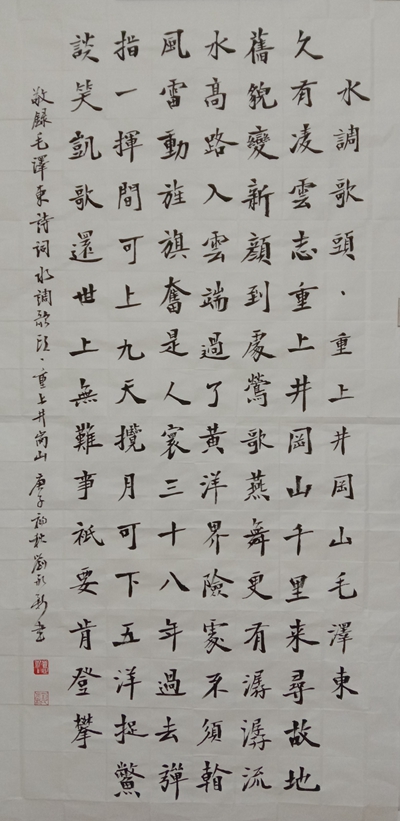 水調歌頭·重上井岡山毛澤東
久有凌雲志重上井岡山千里來尋故地
舊貌變新顏到處鶯歌燕舞更有潺潺流
水高路入雲端過了黃洋界險處不須看
風雷動旌旗奮是人寰三十八年過去彈
指一揮間可上九天攬月可下五洋捉鱉
談笑凱歌還世上無難事祇要肯登攀
敬録毛澤東詩詞水調歌頭·重上井崗山 庚子初秋劉永新書